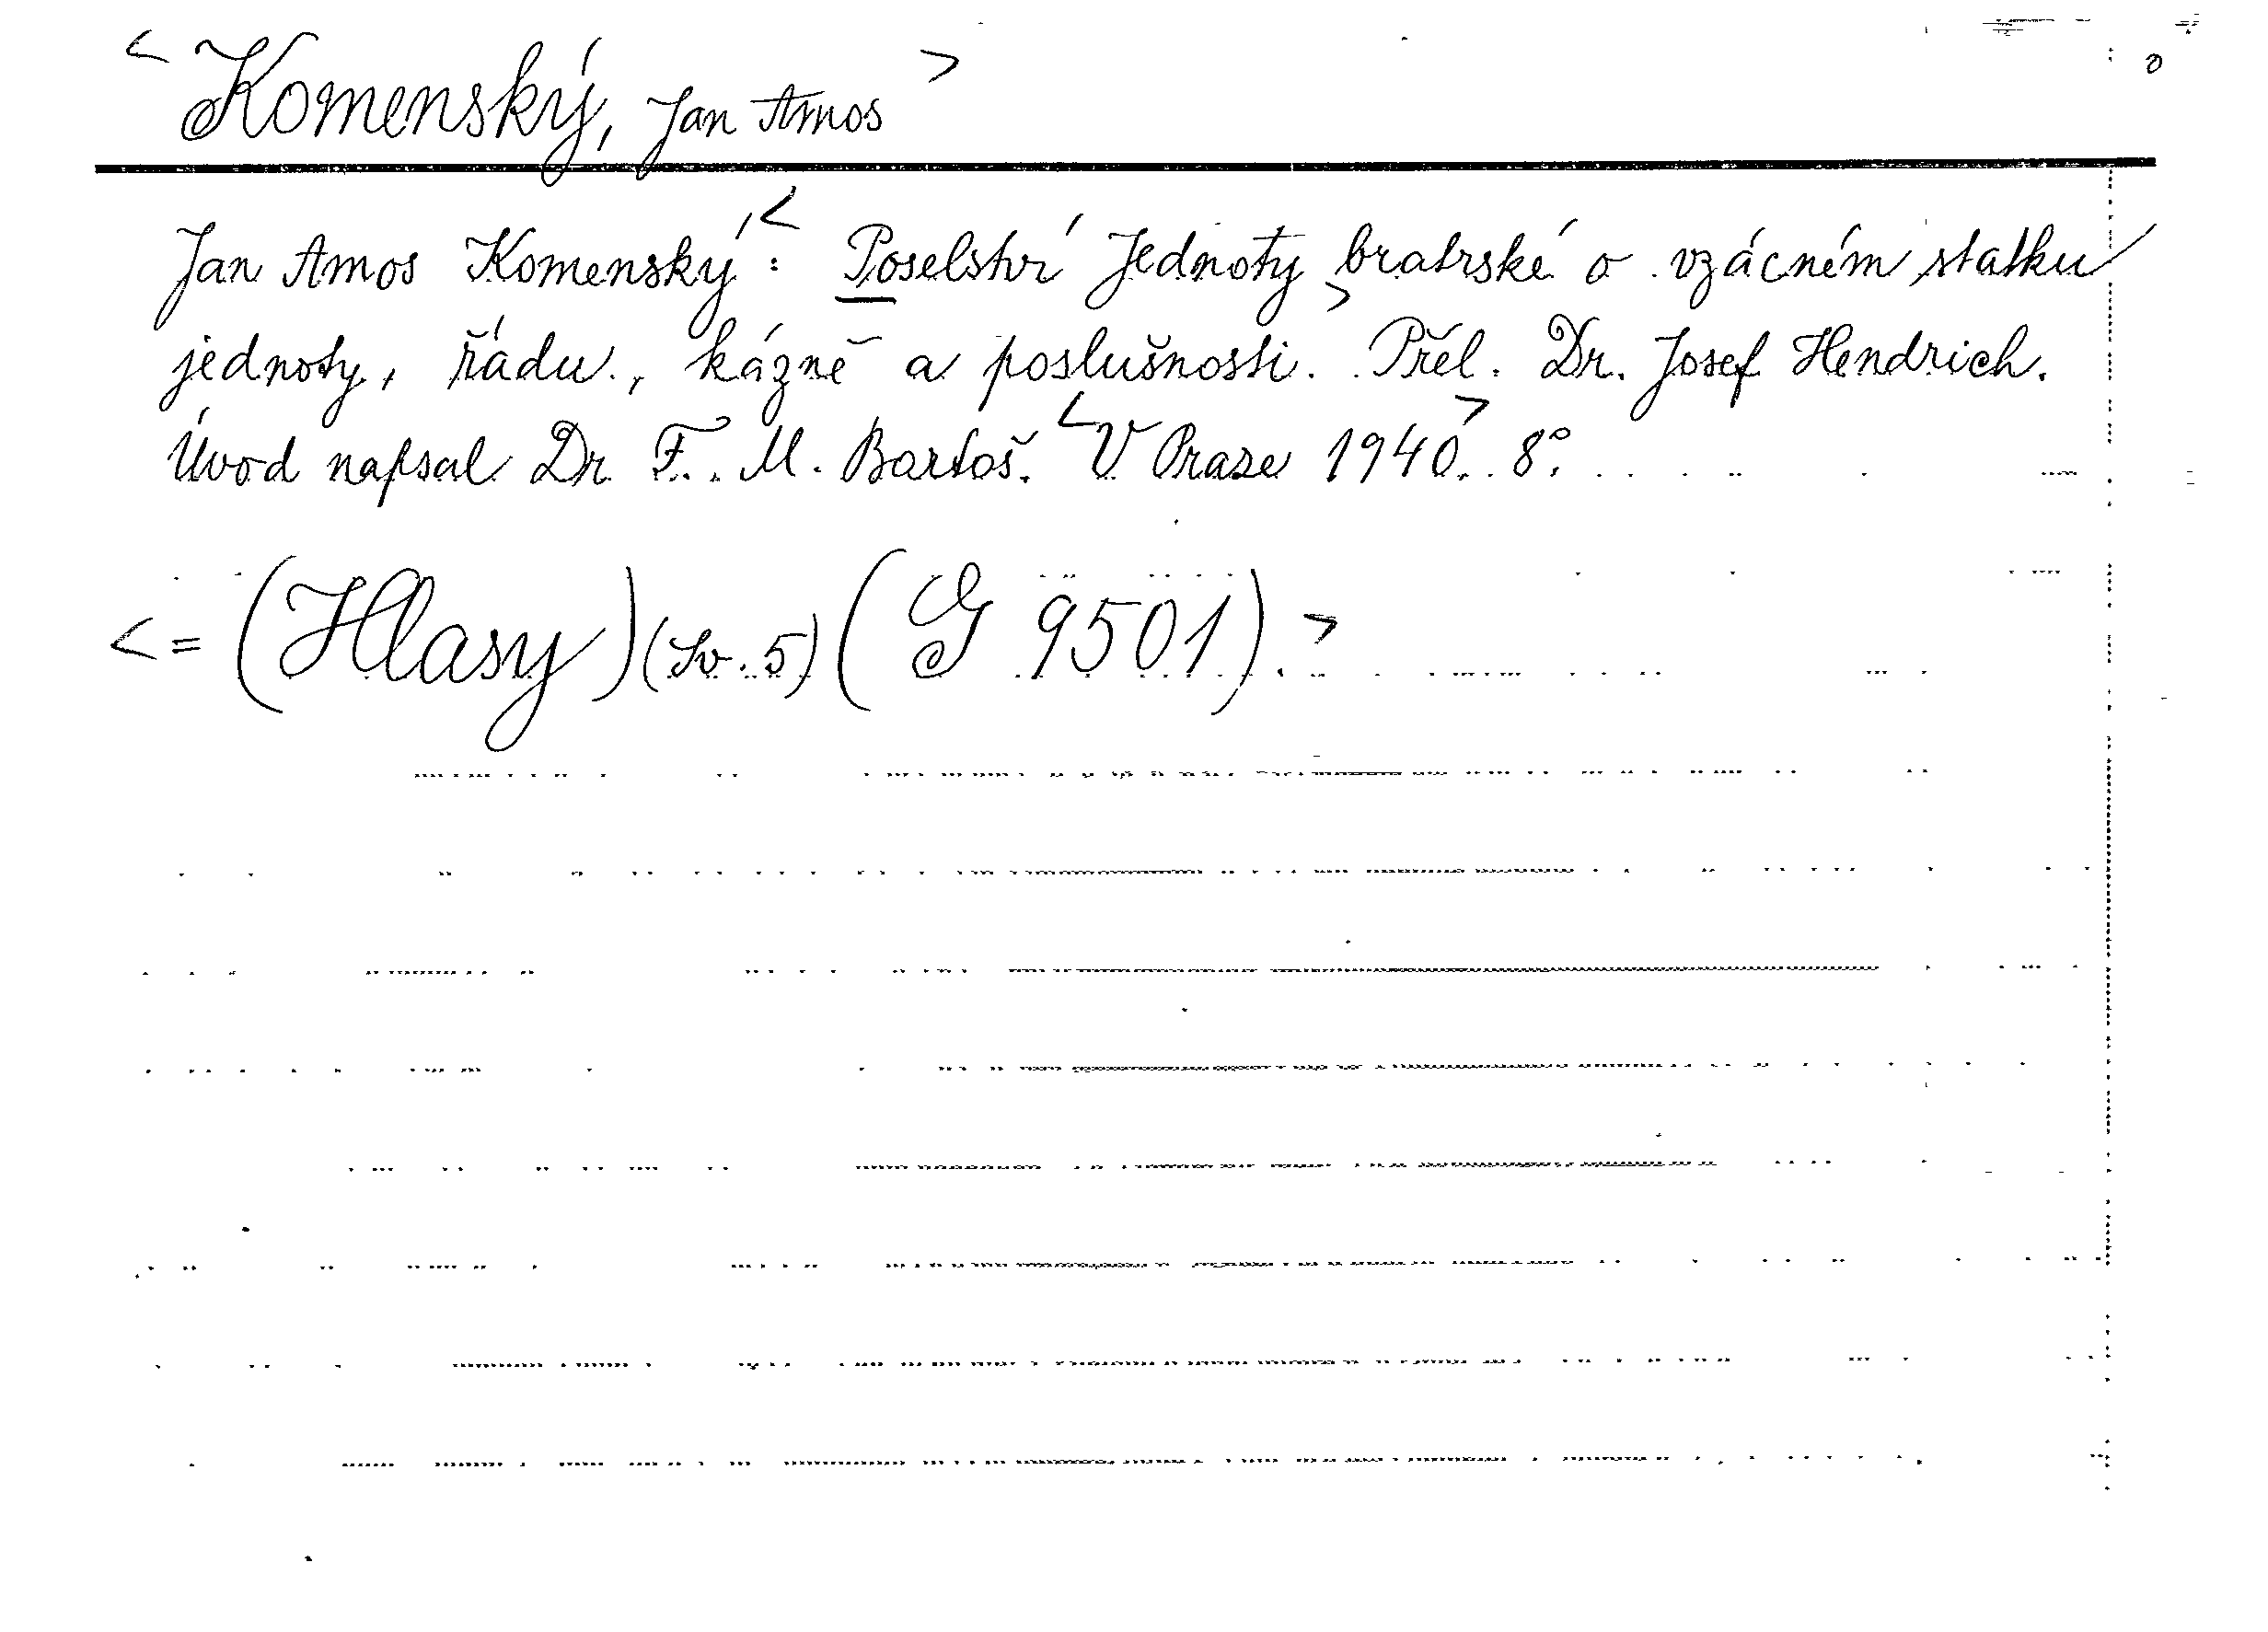 < Komenský, Jan Amos >
Jan Amos Komenský: < Poselství Jednoty bratrské o vzácném statku
jednoty, řádu, kázně a poslušnosti. > Přel. Dr. Josef Hendrich.
Úvod napsal Dr. F. M. Bartoš. < V Praze 1940. > 8°.
< = (Hlasy) (Sv. 5) (G 9501). >